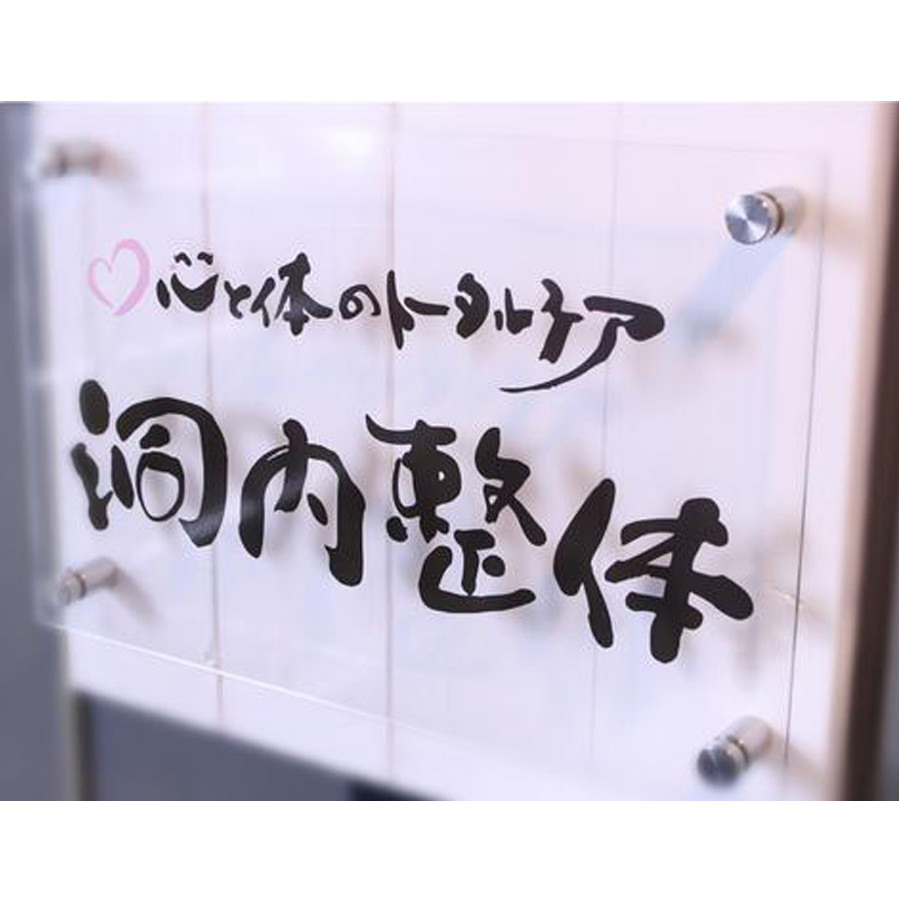 ♡心と体のトータルケア
洞内整体